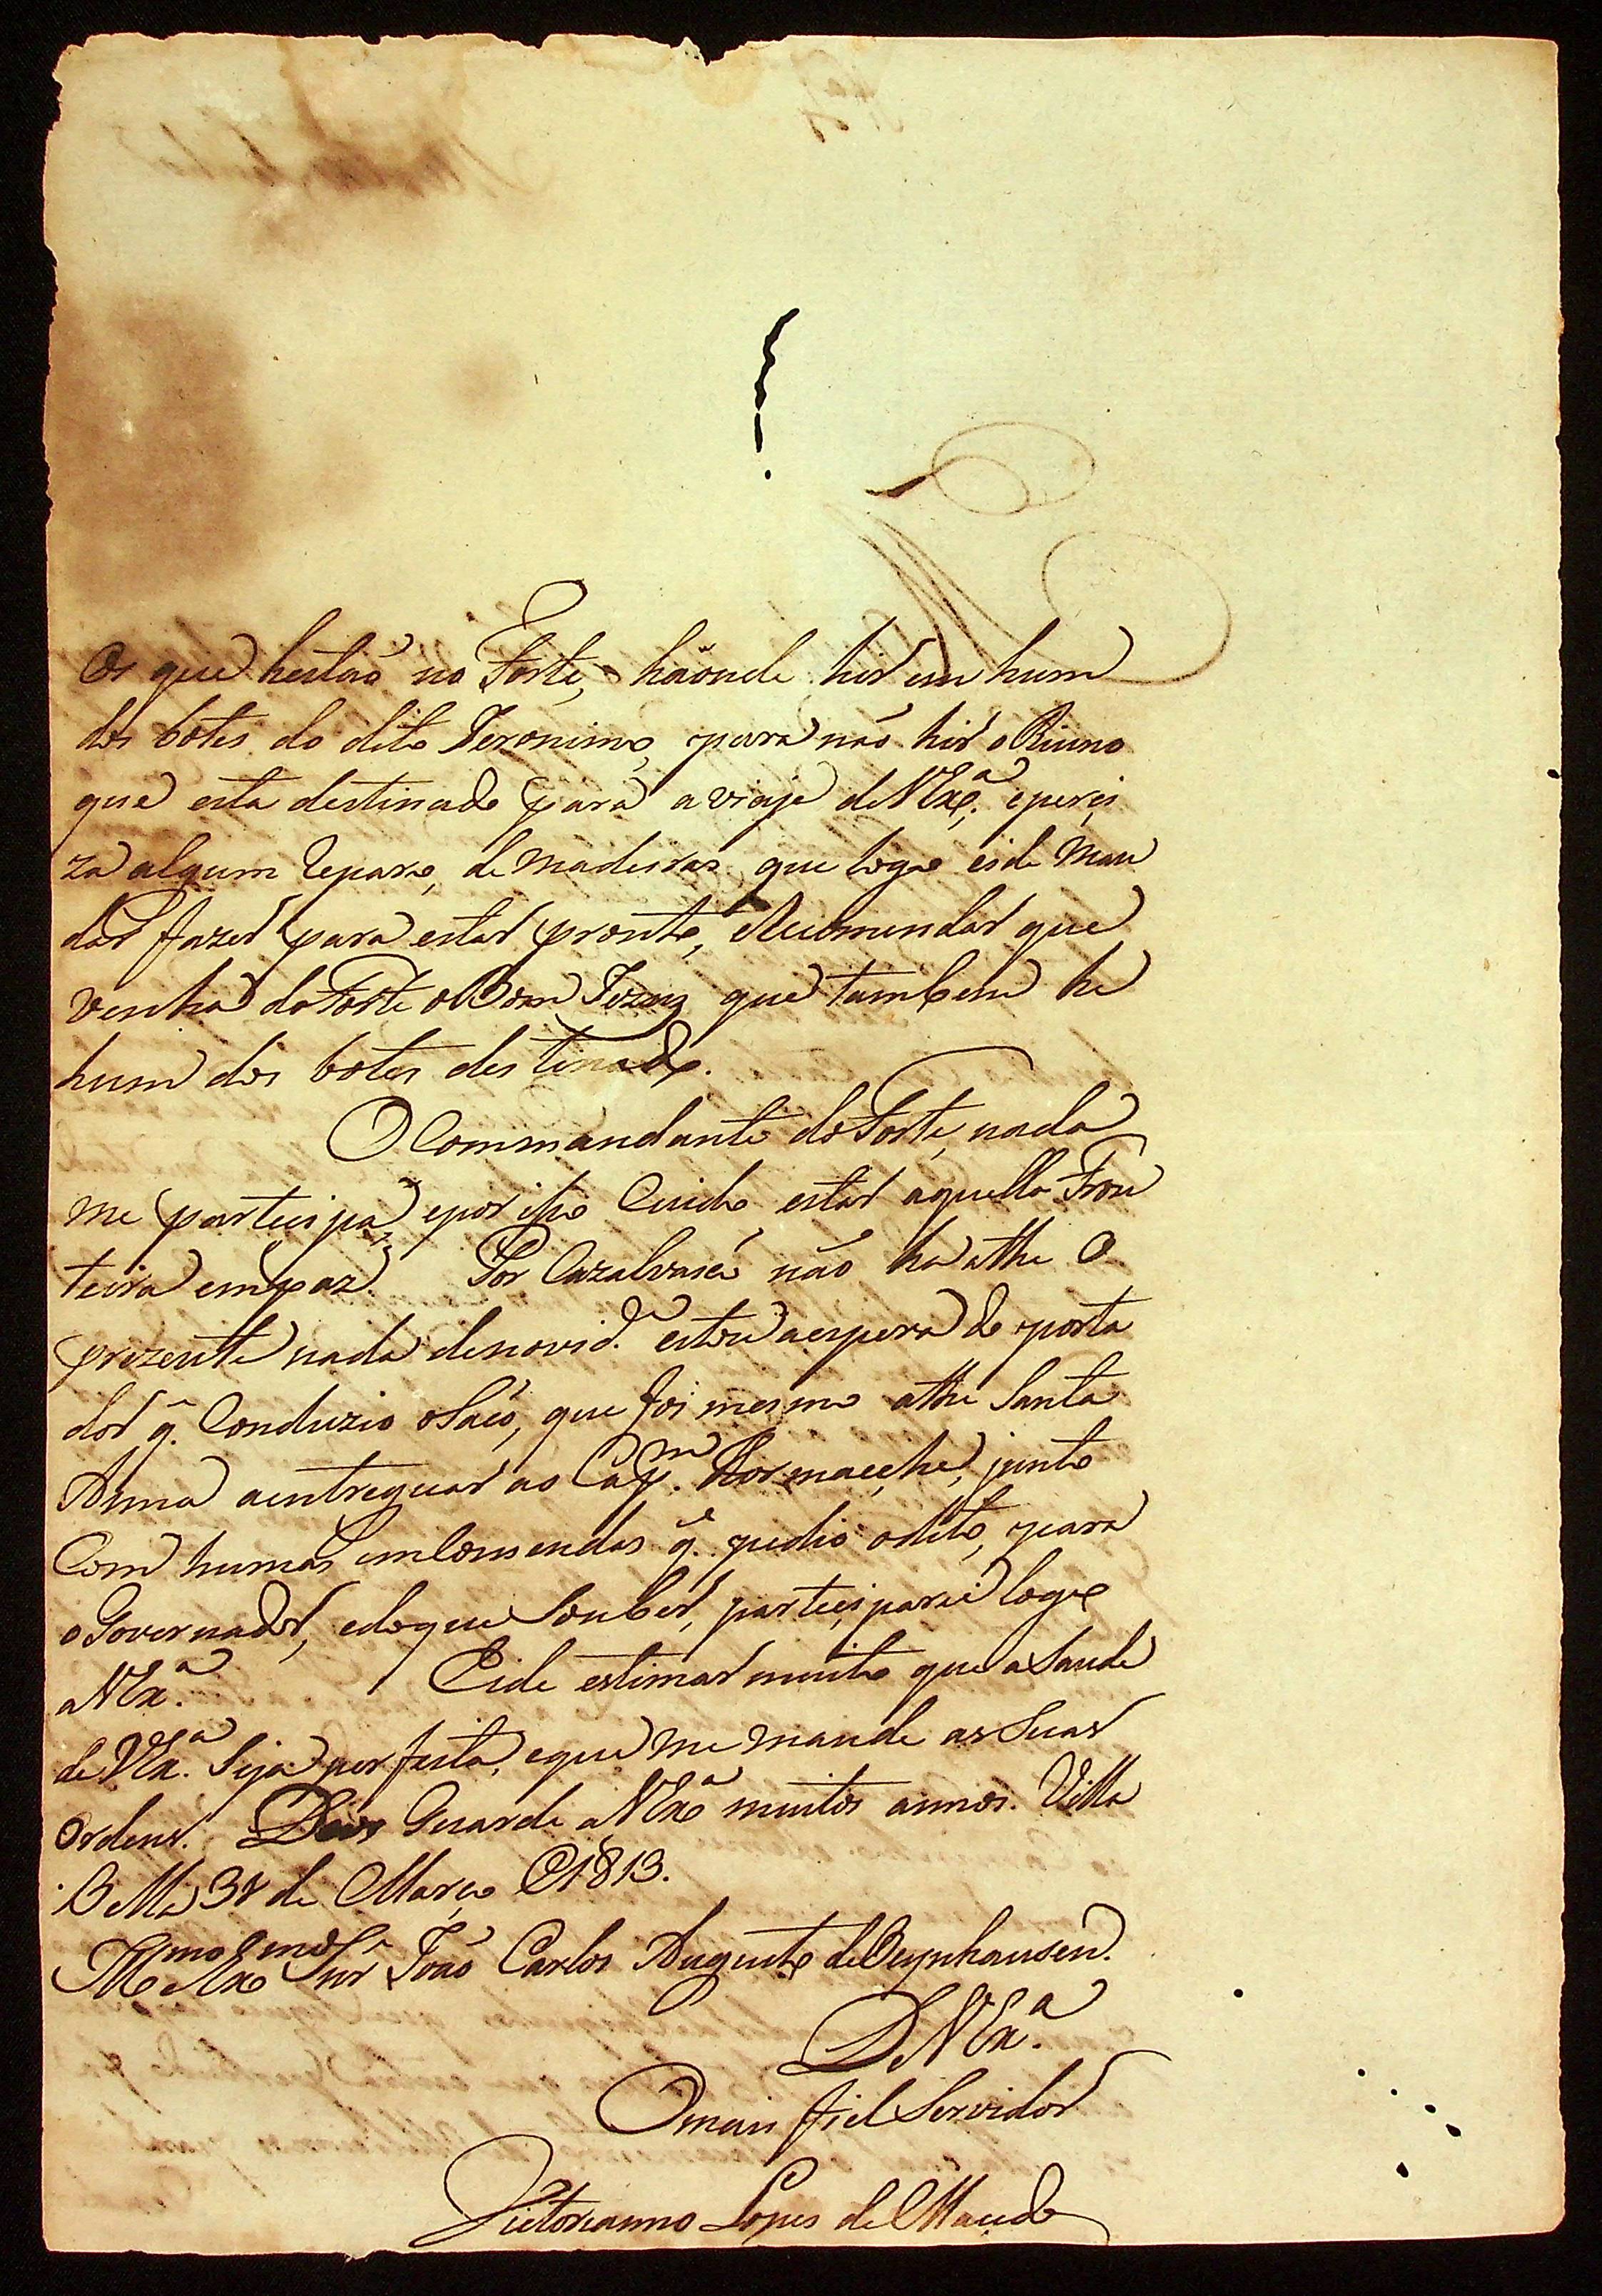 Os que hestaõ no Forte, haõnde hir em hum
dos botes do dito Jeronimo, para não hir o Riuno
que esta destinado para a viaje de VExª, e percis
za algum reparo, de madeiras que logo eide Man
dar fazer para estar pronto, e Recumendar que
venha do Forte o Bom Jezuz que tambem he
hum dos botes destinado.
O Commandante do Forte, nada
me partecipa, e por isso Cuido estar aquella Fron
teira em paz. Por Cazalvasco não ha athe O
prezente nada de novidᵉ. estou a espera do porta
dor q̃. Conduzio o Saco, que foi mesmo athe Santa
Anna a entreguar ao Capᵐ.
Com humas emComendas q̃. pedio o dito, para
o Governador, e do que Souber, partecipárei logo
a VExª. Eide estimar muito que a Saude
de VExª. Seja perfeita, e que me mande as Suas
Ordens. Deos Guarde a VExª muitos annos. Villa
Bella 31 de Março de 1813.
Illmo e Exmo Snr João Carlos Augusto de Oeynhausen.
D VExª.
O mais fiel Servidor
Victorianno Lopes de Macedo